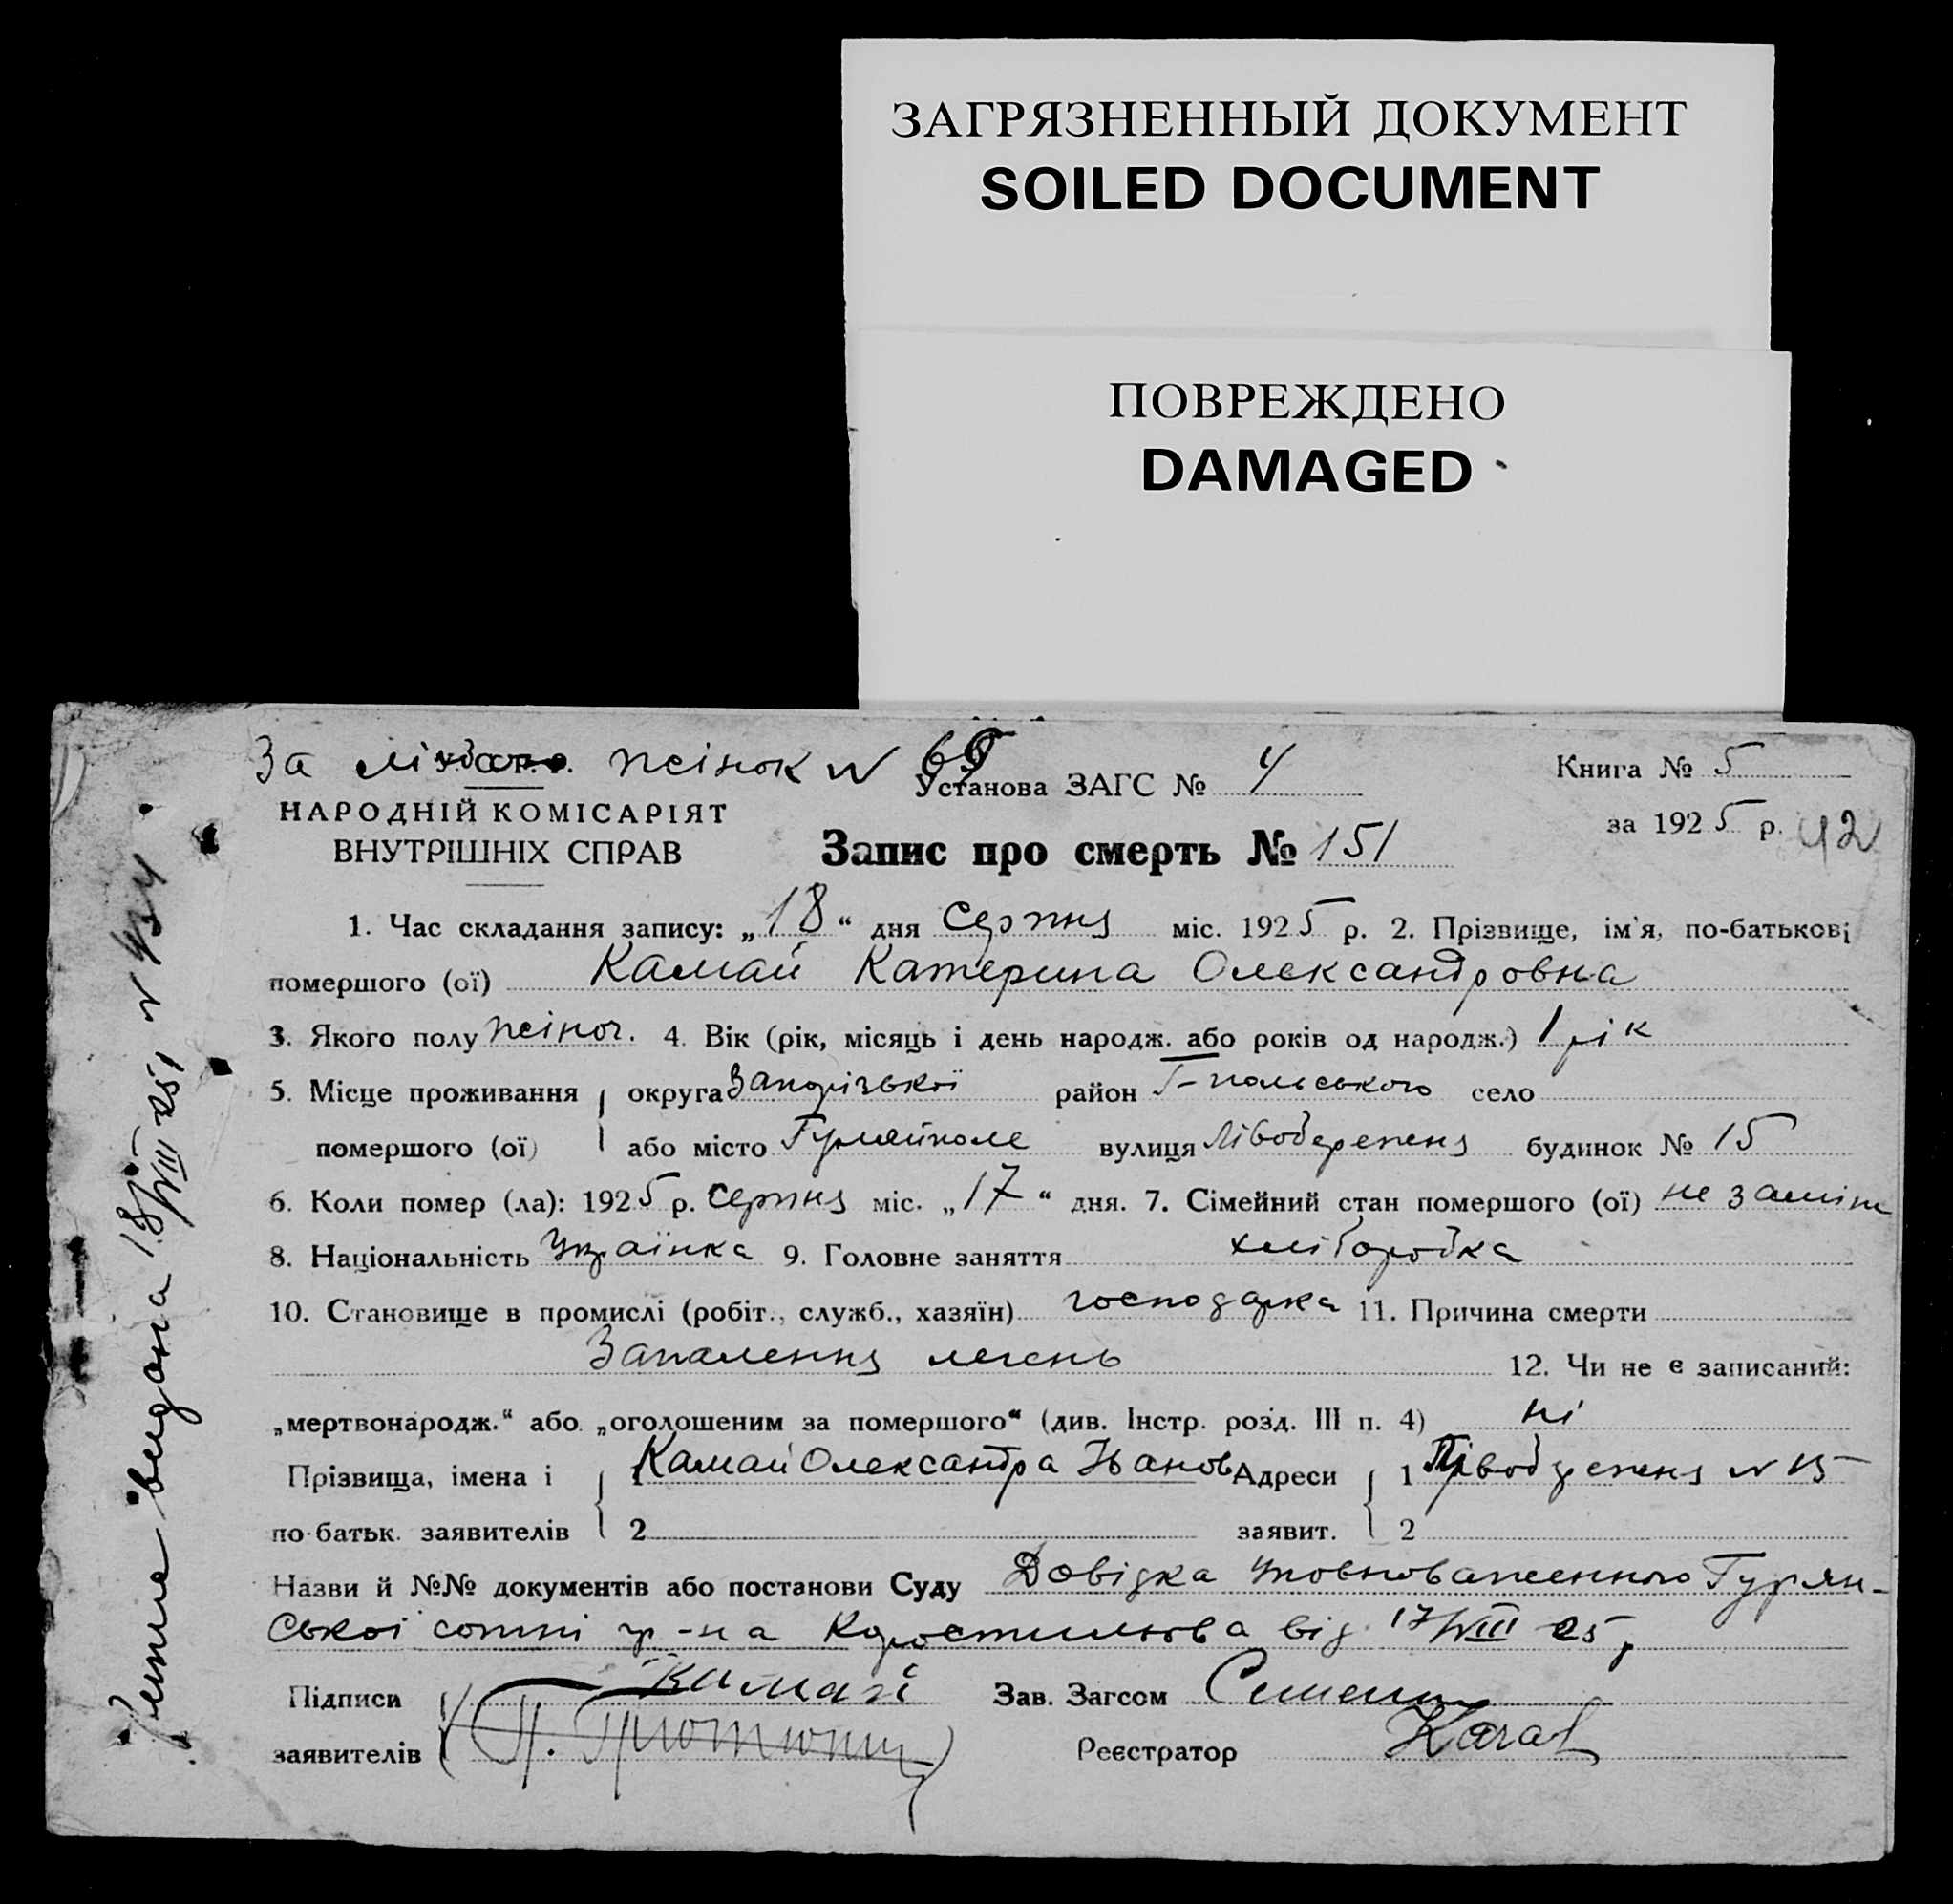 ЗАГРЯЗНЕННЫЙ ДОКУМЕНТ
SOILED DOCUMENT
ПОВРЕЖДЕНО
DAMAGED
За жінок N 65
Установа ЗАГС № 4
Книга № 5
за 1925 р. 42
НАРОДНІЙ КОМІСАРІЯТ
ВНУТРІШНІХ СПРАВ
Запис про смерть № 151
1. Час складання запису: „18“ дня серпня міс. 1925 р. 2. Прізвище, ім'я, по-батькові
помершого (ої) Камай Катерина Олександровна
3. Якого полу жіноч. 4. Вік (рік, місяць і день народж. або років од народж.) 1 рік
5. Місце проживання округа Запорізької район Г-польського село
помершого (ої) або місто Гуляйполе вулиця Лівобережня будинок № 15
6. Коли помер (ла): 1925 р. серпня міс. „17“ дня. 7. Сімейний стан помершого (ої) не заміж
8. Національність Українка 9. Головне заняття хліборобка
10. Становище в промислі (робіт., служб., хазяїн) господарка 11. Причина смерти
Запалення легень 12. Чи не є записаний:
„мертвонародж.“ або „оголошеним за помершого“ (див. Інстр. розд. III п. 4) ні
Прізвища, імена і 1 Камай Олександра Іванов Адреси 1 Лівобережня N 15
по-батьк. заявителів 2 заявит. 2
Назви й №№ документів або постанови Суду Довідка уповноваженного
ської сотні гр-на Коростильова від 17/VIII 25 р
Підписи Камай Зав. Загсом
заявителів Реєстратор
видана 18/VIII 25 N